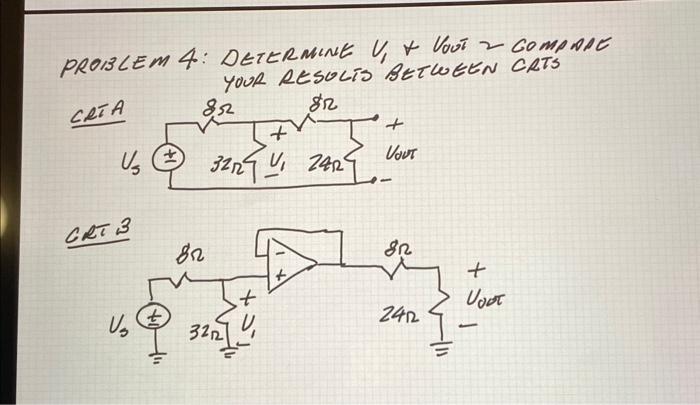 PROBLEM 4: DETERMINE V₁ + VOUT & COMPARE
YOUR RESULTS BETWEEN CKTS
CKT A
8Ω 8Ω
Vs ± 32Ω + V₁ - 24Ω + VOUT -
CKT B
8Ω - + 8Ω
Vs ± 32Ω + V₁ - 24Ω + VOUT -